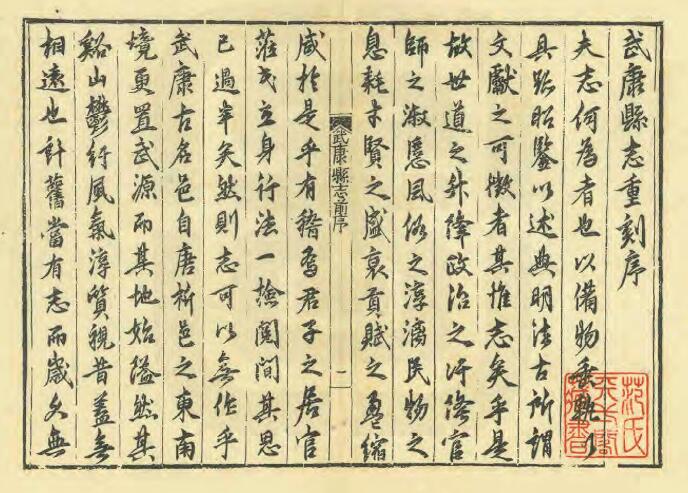 武康縣志重刻序
夫志何為者也以備物垂軌
具跡昭鑒以述典明法古所謂
文獻之可徵者其惟志矣乎是
故世道之升降政治之汙隆官
師之淑慝風俗之淳漓民物之
息耗才賢之盛衰貢賦之盈縮
咸於是乎有稽焉君子之居官
蒞民立身行法一撿閱間其思
已過半矣然則志可以無作乎
武康古名邑自唐析邑之東南
境更置武源而其地始隘然其
谿山鬱紆風氣淳質視昔蓋無
相遠也計舊當有志而歲久無
武康縣志前序
一
范氏天一閣藏書